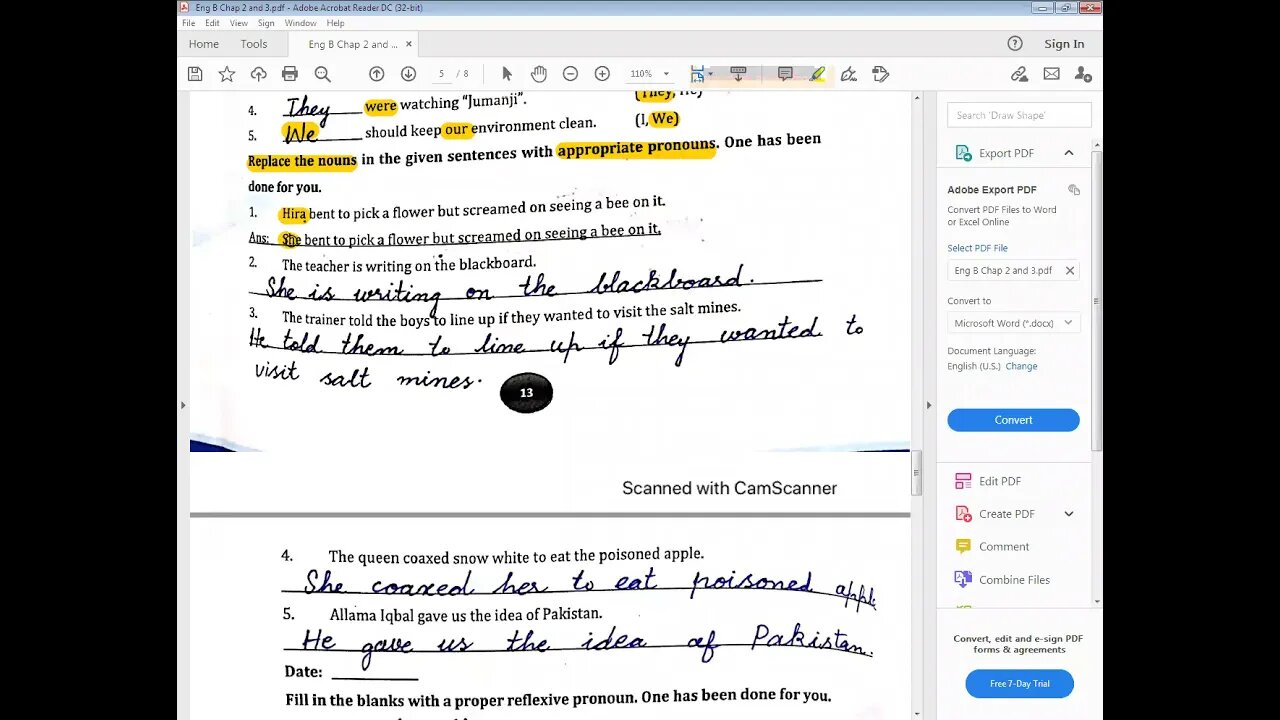 Eng B Chap 2 and 3.pdf - Adobe Acrobat Reader DC (32-bit)
File Edit View Sign Window Help
Home Tools Eng B Chap 2 and ... × Sign In
5 / 8 110%
4. They were watching "Jumanji". (They, He)
5. We should keep our environment clean. (I, We)
Replace the nouns in the given sentences with appropriate pronouns. One has been
done for you.
1. Hira bent to pick a flower but screamed on seeing a bee on it.
Ans: She bent to pick a flower but screamed on seeing a bee on it.
2. The teacher is writing on the blackboard.
She is writing on the blackboard.
3. The trainer told the boys to line up if they wanted to visit the salt mines.
He told them to line up if they wanted to
visit salt mines.
13
Scanned with CamScanner
4. The queen coaxed snow white to eat the poisoned apple.
She coaxed her to eat poisoned apple
5. Allama Iqbal gave us the idea of Pakistan.
He gave us the idea of Pakistan.
Date:
Fill in the blanks with a proper reflexive pronoun. One has been done for you.
Search 'Draw Shape'
Export PDF
Adobe Export PDF
Convert PDF Files to Word
or Excel Online
Select PDF File
Eng B Chap 2 and 3.pdf
Convert to
Microsoft Word (*.docx)
Document Language:
English (U.S.) Change
Convert
Edit PDF
Create PDF
Comment
Combine Files
Convert, edit and e-sign PDF
forms & agreements
Free 7-Day Trial